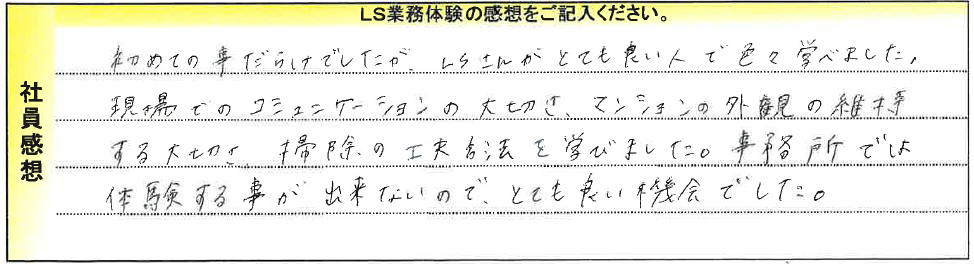 LS業務体験の感想をご記入ください。
社員感想
初めての事だらけでしたが、LSさんがとても良い人で色々学べました。
現場でのコミュニケーションの大切さ、マンションの外観の維持
する大切さ、掃除の工夫方法を学びました。事務所では
体験する事が出来ないので、とても良い機会でした。